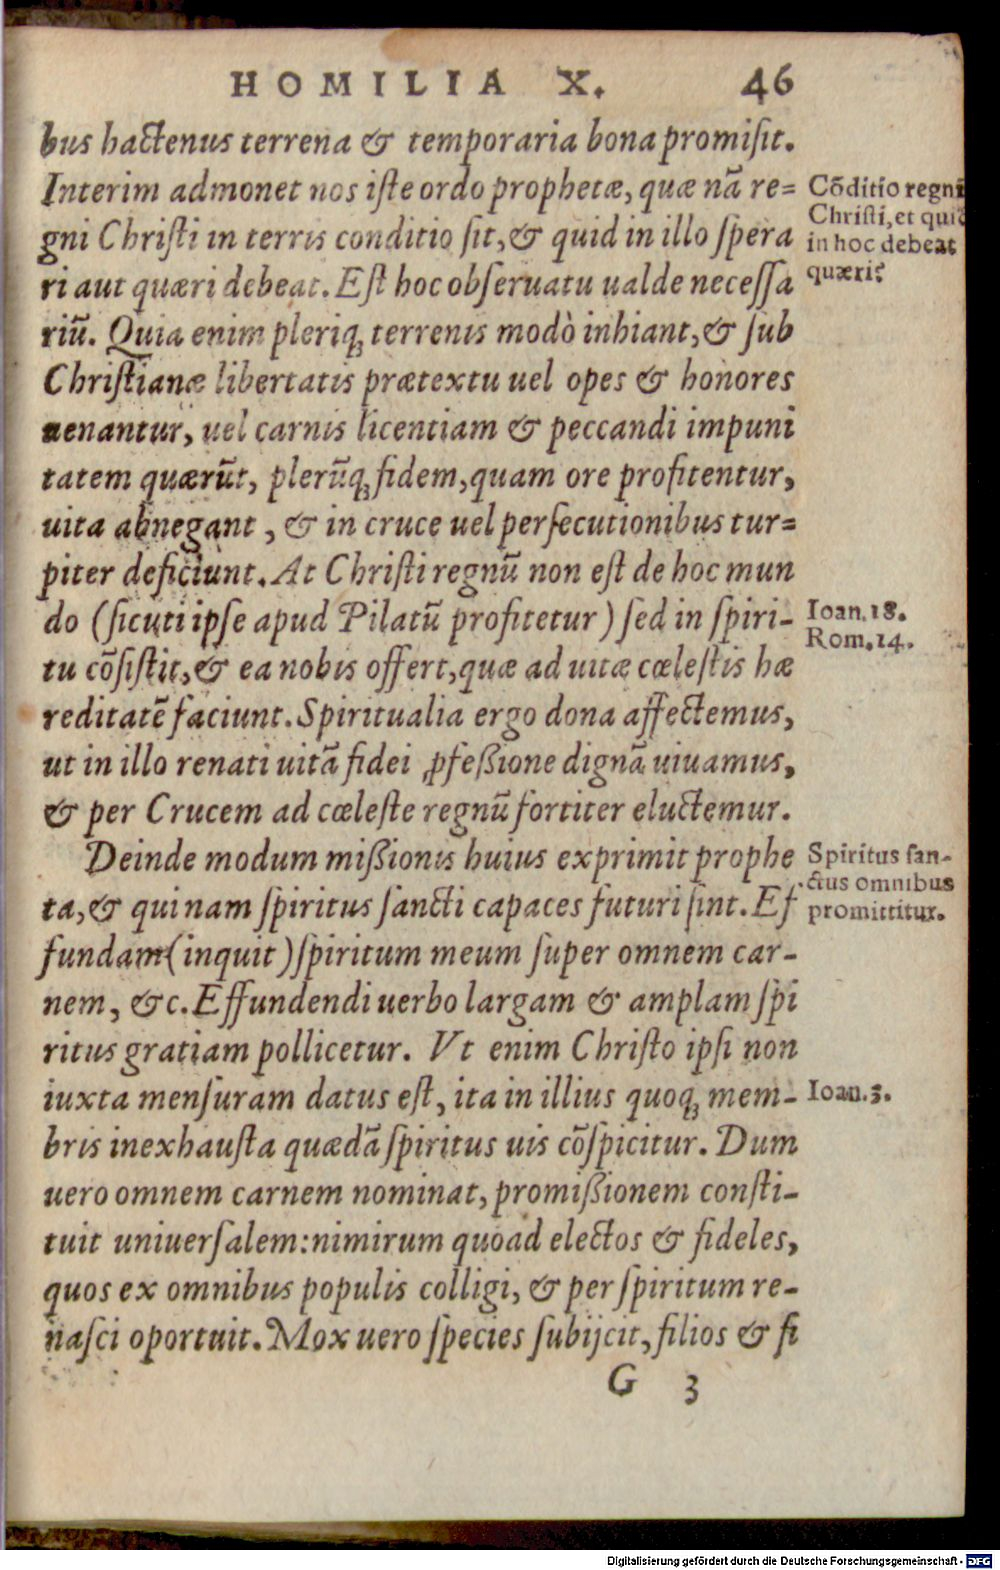 HOMILIA X. 46
bus hactenus terrena & temporaria bona promiſit.
Interim admonet nos iſte ordo prophetæ, quæ nã re=
gni Chriſti in terris conditio ſit, & quid in illo ſpera
ri aut quæri debeat. Eſt hoc obſeruatu ualde neceſſa
riũ. Quia enim pleriq; terrenis modò inhiant, & ſub
Chriſtianæ libertatis prætextu uel opes & honores
uenantur, uel carnis licentiam & peccandi impuni
tatem quærũt, plerũq; fidem, quam ore profitentur,
uita abnegant, & in cruce uel perſecutionibus tur=
piter deficiunt. At Chriſti regnũ non eſt de hoc mun
do (ſicuti ipſe apud Pilatũ profitetur) ſed in ſpiri-
tu cõſiſtit, & ea nobis offert, quæ ad uitæ cœleſtis hæ
reditatẽ faciunt. Spiritualia ergo dona affectemus,
ut in illo renati uitã fidei ꝓfeßione dignã uiuamus,
& per Crucem ad cœleſte regnũ fortiter eluctemur.
Deinde modum mißionis huius exprimit prophe
ta, & quinam ſpiritus ſancti capaces futuri ſint. Ef
fundam (inquit) ſpiritum meum ſuper omnem car-
nem, &c. Effundendi uerbo largam & amplam ſpi
ritus gratiam pollicetur. Vt enim Chriſto ipſi non
iuxta menſuram datus eſt, ita in illius quoq; mem-
bris inexhauſta quædã ſpiritus uis cõſpicitur. Dum
uero omnem carnem nominat, promißionem conſti-
tuit uniuerſalem: nimirum quoad electos & fideles,
quos ex omnibus populis colligi, & per ſpiritum re-
naſci oportuit. Mox uero ſpecies ſubijcit, filios & fi
G 3
Cõditio regni
Chriſti, et quid
in hoc debeat
quæri?
Ioan. 18.
Rom. 14.
Spiritus ſan-
ctus omnibus
promittitur.
Ioan. 3.
Digitalisierung gefördert durch die Deutsche Forschungsgemeinschaft - DFG